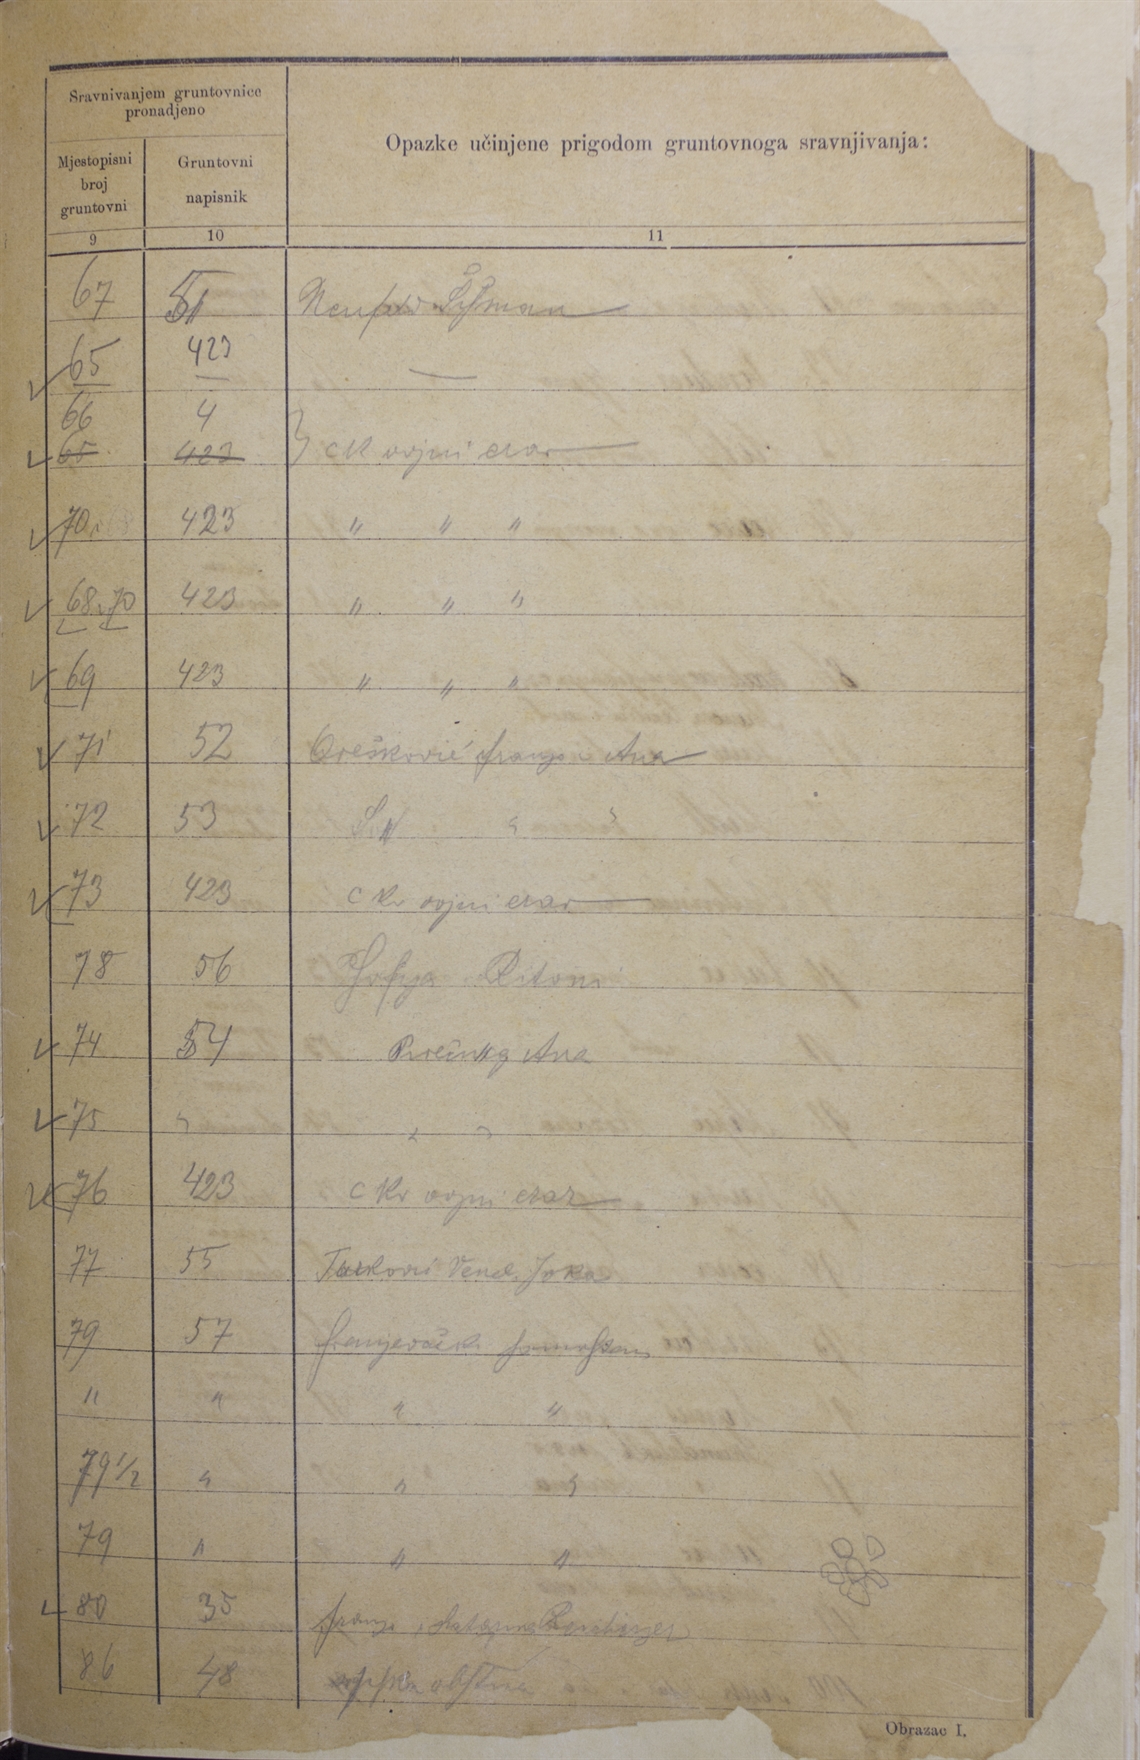 Sravnivanjem gruntovnice
pronadjeno
Opazke učinjene prigodom gruntovnoga sravnjivanja:
Mjestopisni
broj
gruntovni
Gruntovni
napisnik
9 10 11
67 51
65 423 —
66 4
65 423 } ck vojni erar
70 423 " " "
68 i 70 423 " " "
69 423 " " "
71 52 Orešković Franjo i Ana
72 53 " "
73 423 c kr vojni erar
78 56
74 54 Ana
75 " " "
76 423 c kr vojni erar
77 55
79 57 Franjevački samostan
" " " "
79 1/2 " " "
79 " " "
80 35 Franjo i Katarina
86 48
Obrazac I.